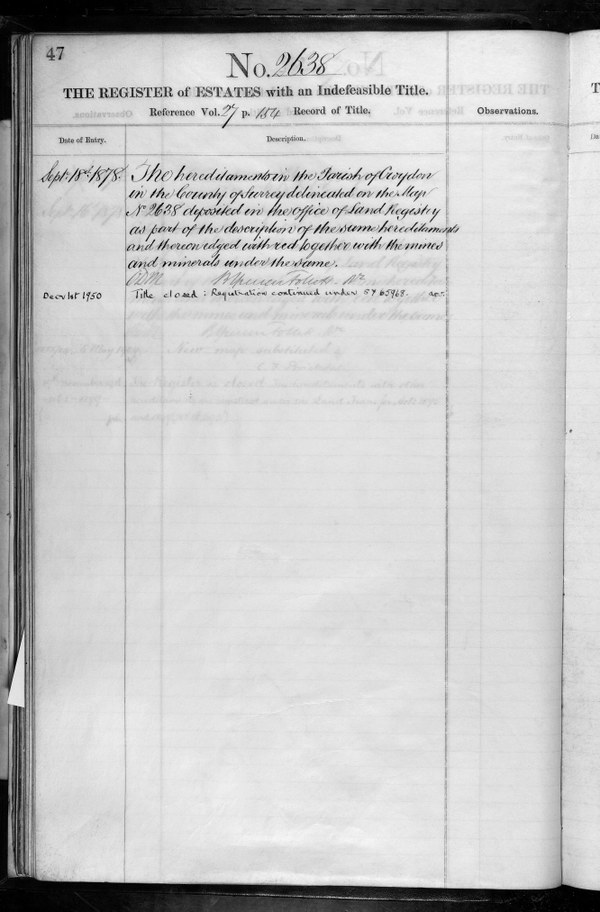 47
No. 2638
THE REGISTER of ESTATES with an Indefeasible Title.
Reference Vol. 27 p. 154 Record of Title.
Observations.
Date of Entry.
Description.
Sept. 18th 1878.
The hereditaments in the Parish of Croydon
in the County of Surrey delineated on the Map
No 2638 deposited in the office of Land Registry
as part of the description of the same hereditaments
and thereon edged with red together with the mines
and minerals under the same.
Follett
Decr 1st 1950
Title closed: Registration continued under SY 65968.